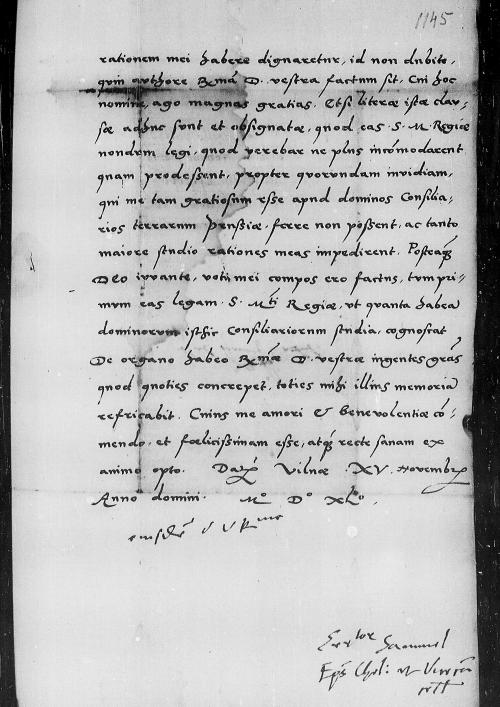 1145
rationem mei habere dignaretur, id non dubito,
quin authore R̃ma D. vestra factum sit. Cui hoc
nomine, ago magnas gratias. Etsi literæ istæ clau-
sæ adhuc sunt et obsignatæ, quod eas S. M. Regiæ
nondum legi, quod verebar ne plus incōmodarent
quam prodessent, propter quorundam invidiam,
qui me tam gratiosum esse apud dominos Consilia-
rios terrarum Prussiæ, ferre non possent, ac tanto
maiore studio rationes meas impedirent. Posteaq̃
Deo iuvante, voti mei compos ero factus, tum pri-
mum eas legam S. M̃ti Regiæ, ut quanta habeā
dominorum isthic Consiliariorum studia, cognoscat
De organo habeo R̃mæ D. vestræ ingentes grãs
quod quoties concrepet, toties mihi illius memoriā
refricabit. Cuius me amori & benevolentiæ cō-
mendo, et fœlicissimam esse, atq̃ recte sanam ex
animo opto. Dat̃ Vilnæ XV. Novembr̃
Anno domini. Mº Dº XLº.
eiusdē V R me
Samuel
Ep̃s Chel: et